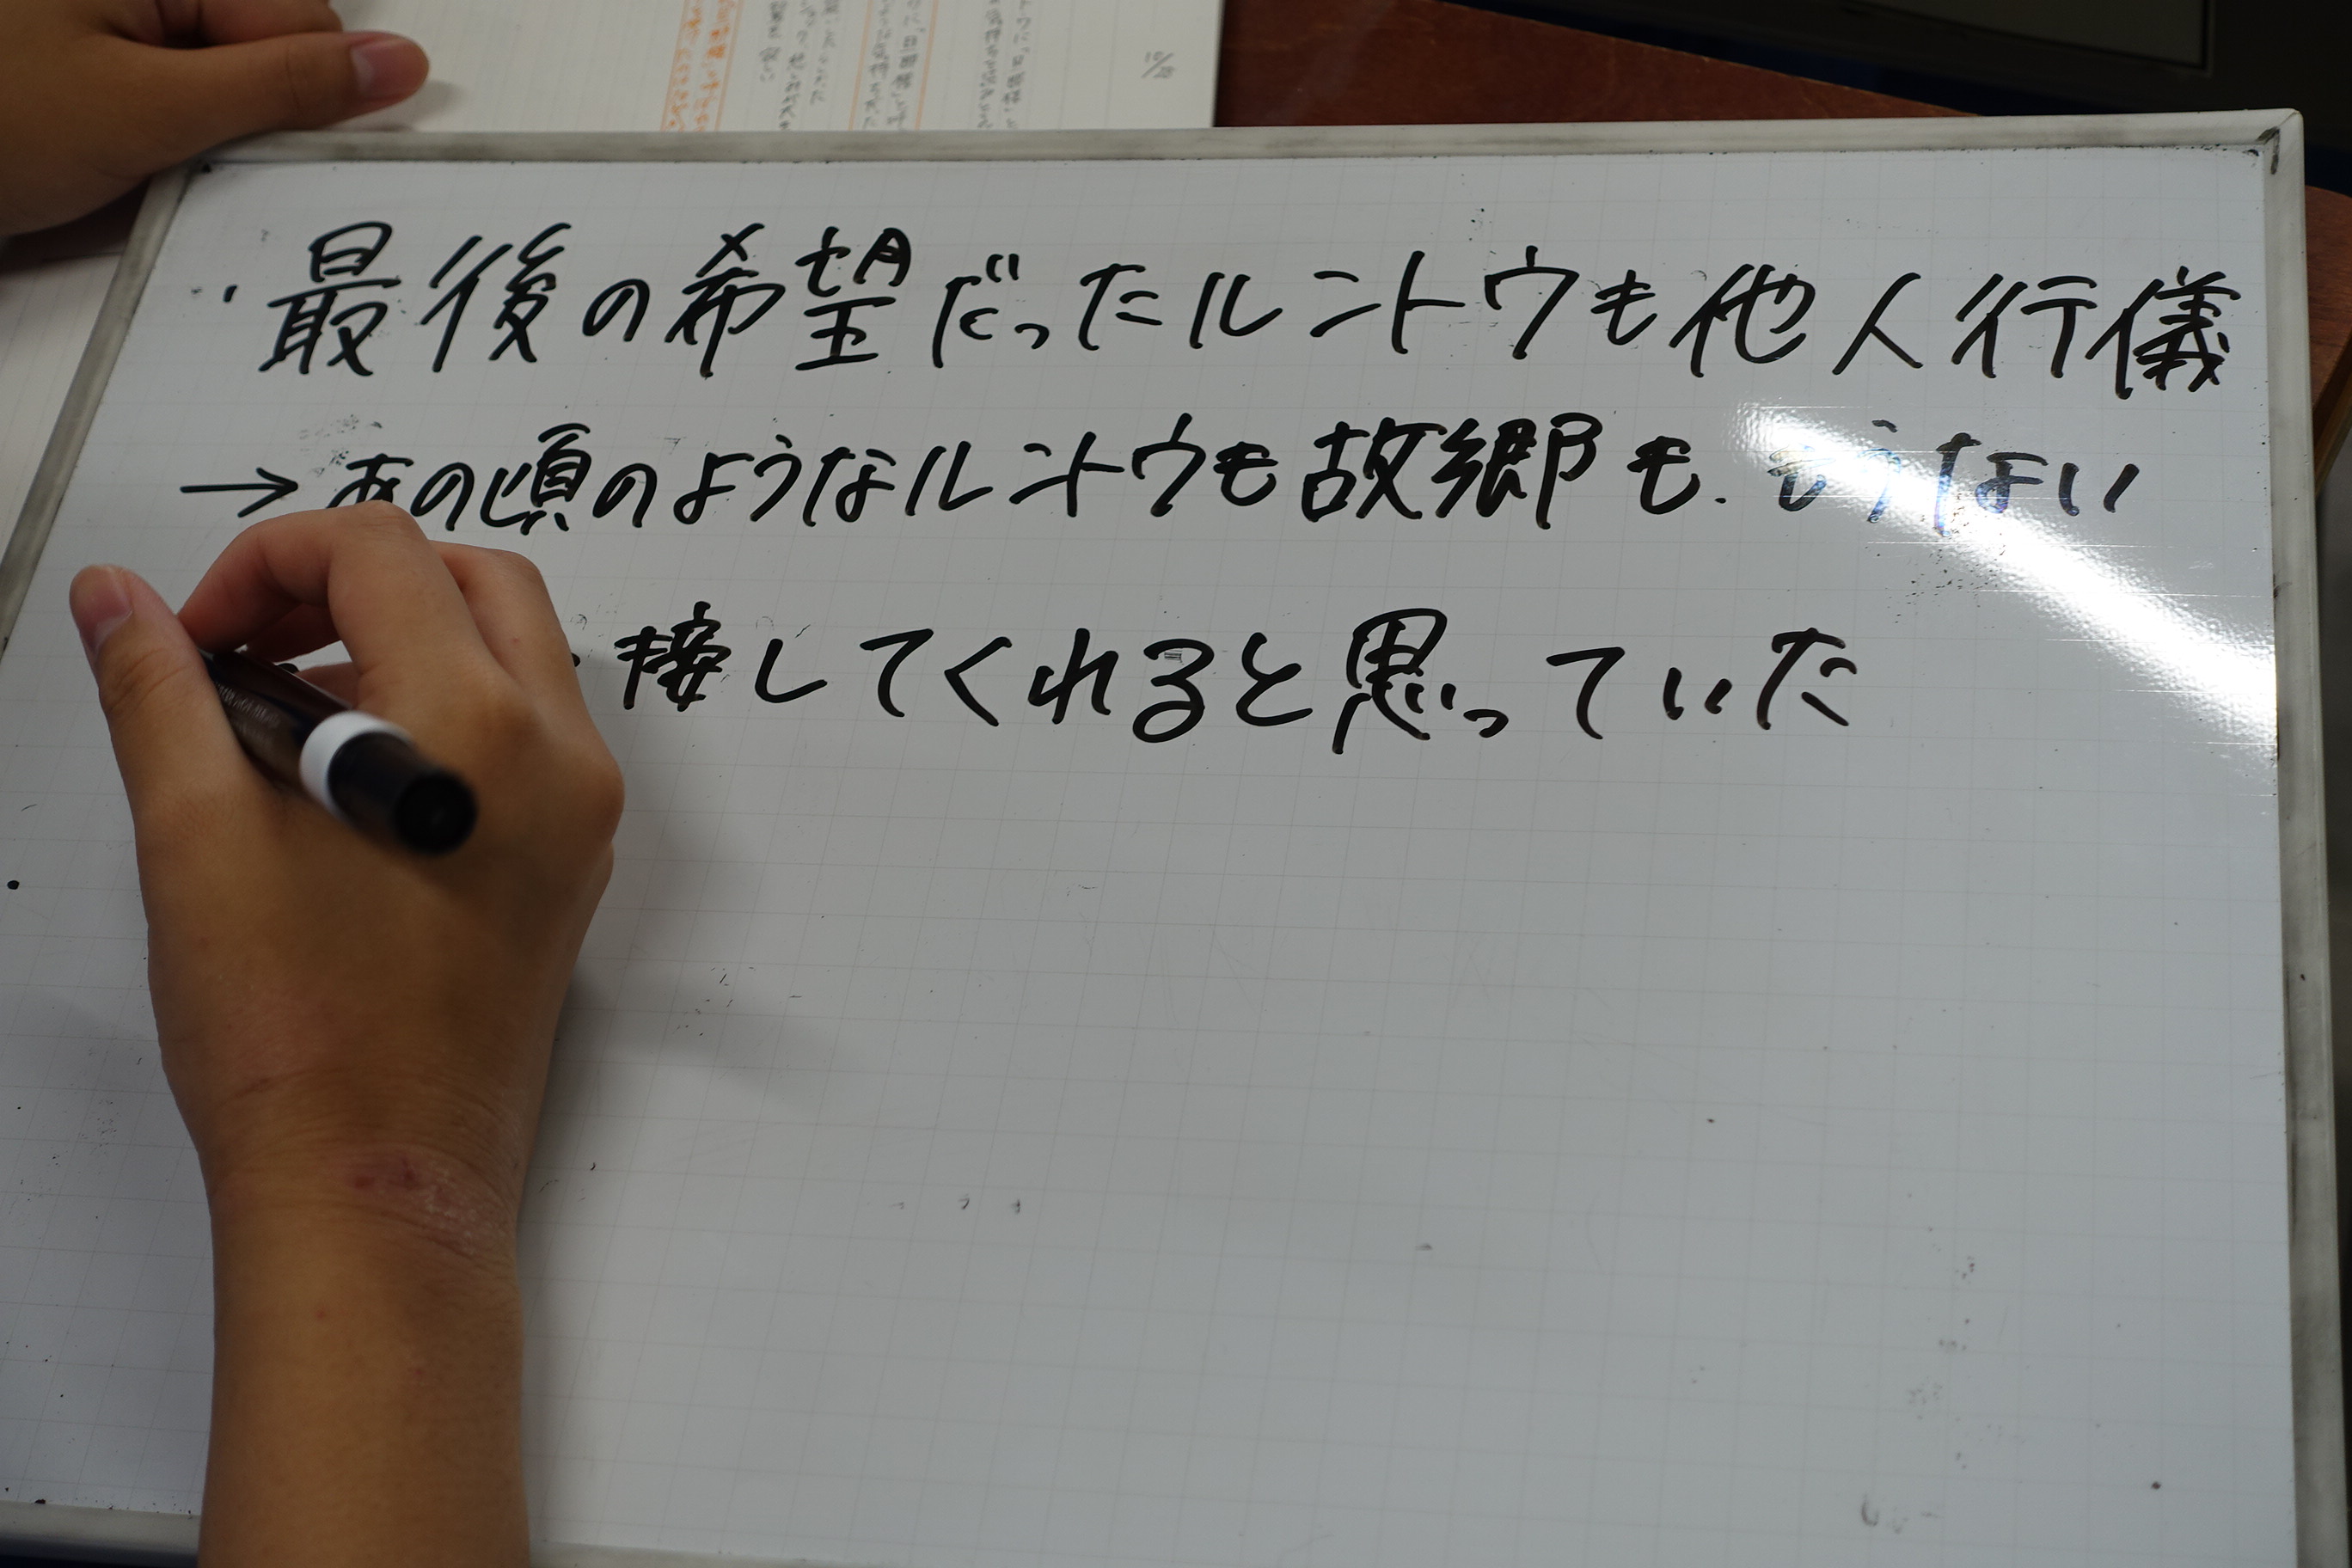 ・最後の希望だったルントウも他人行儀
→あの頃のようなルントウも故郷も、もうない
接してくれると思っていた
10/28